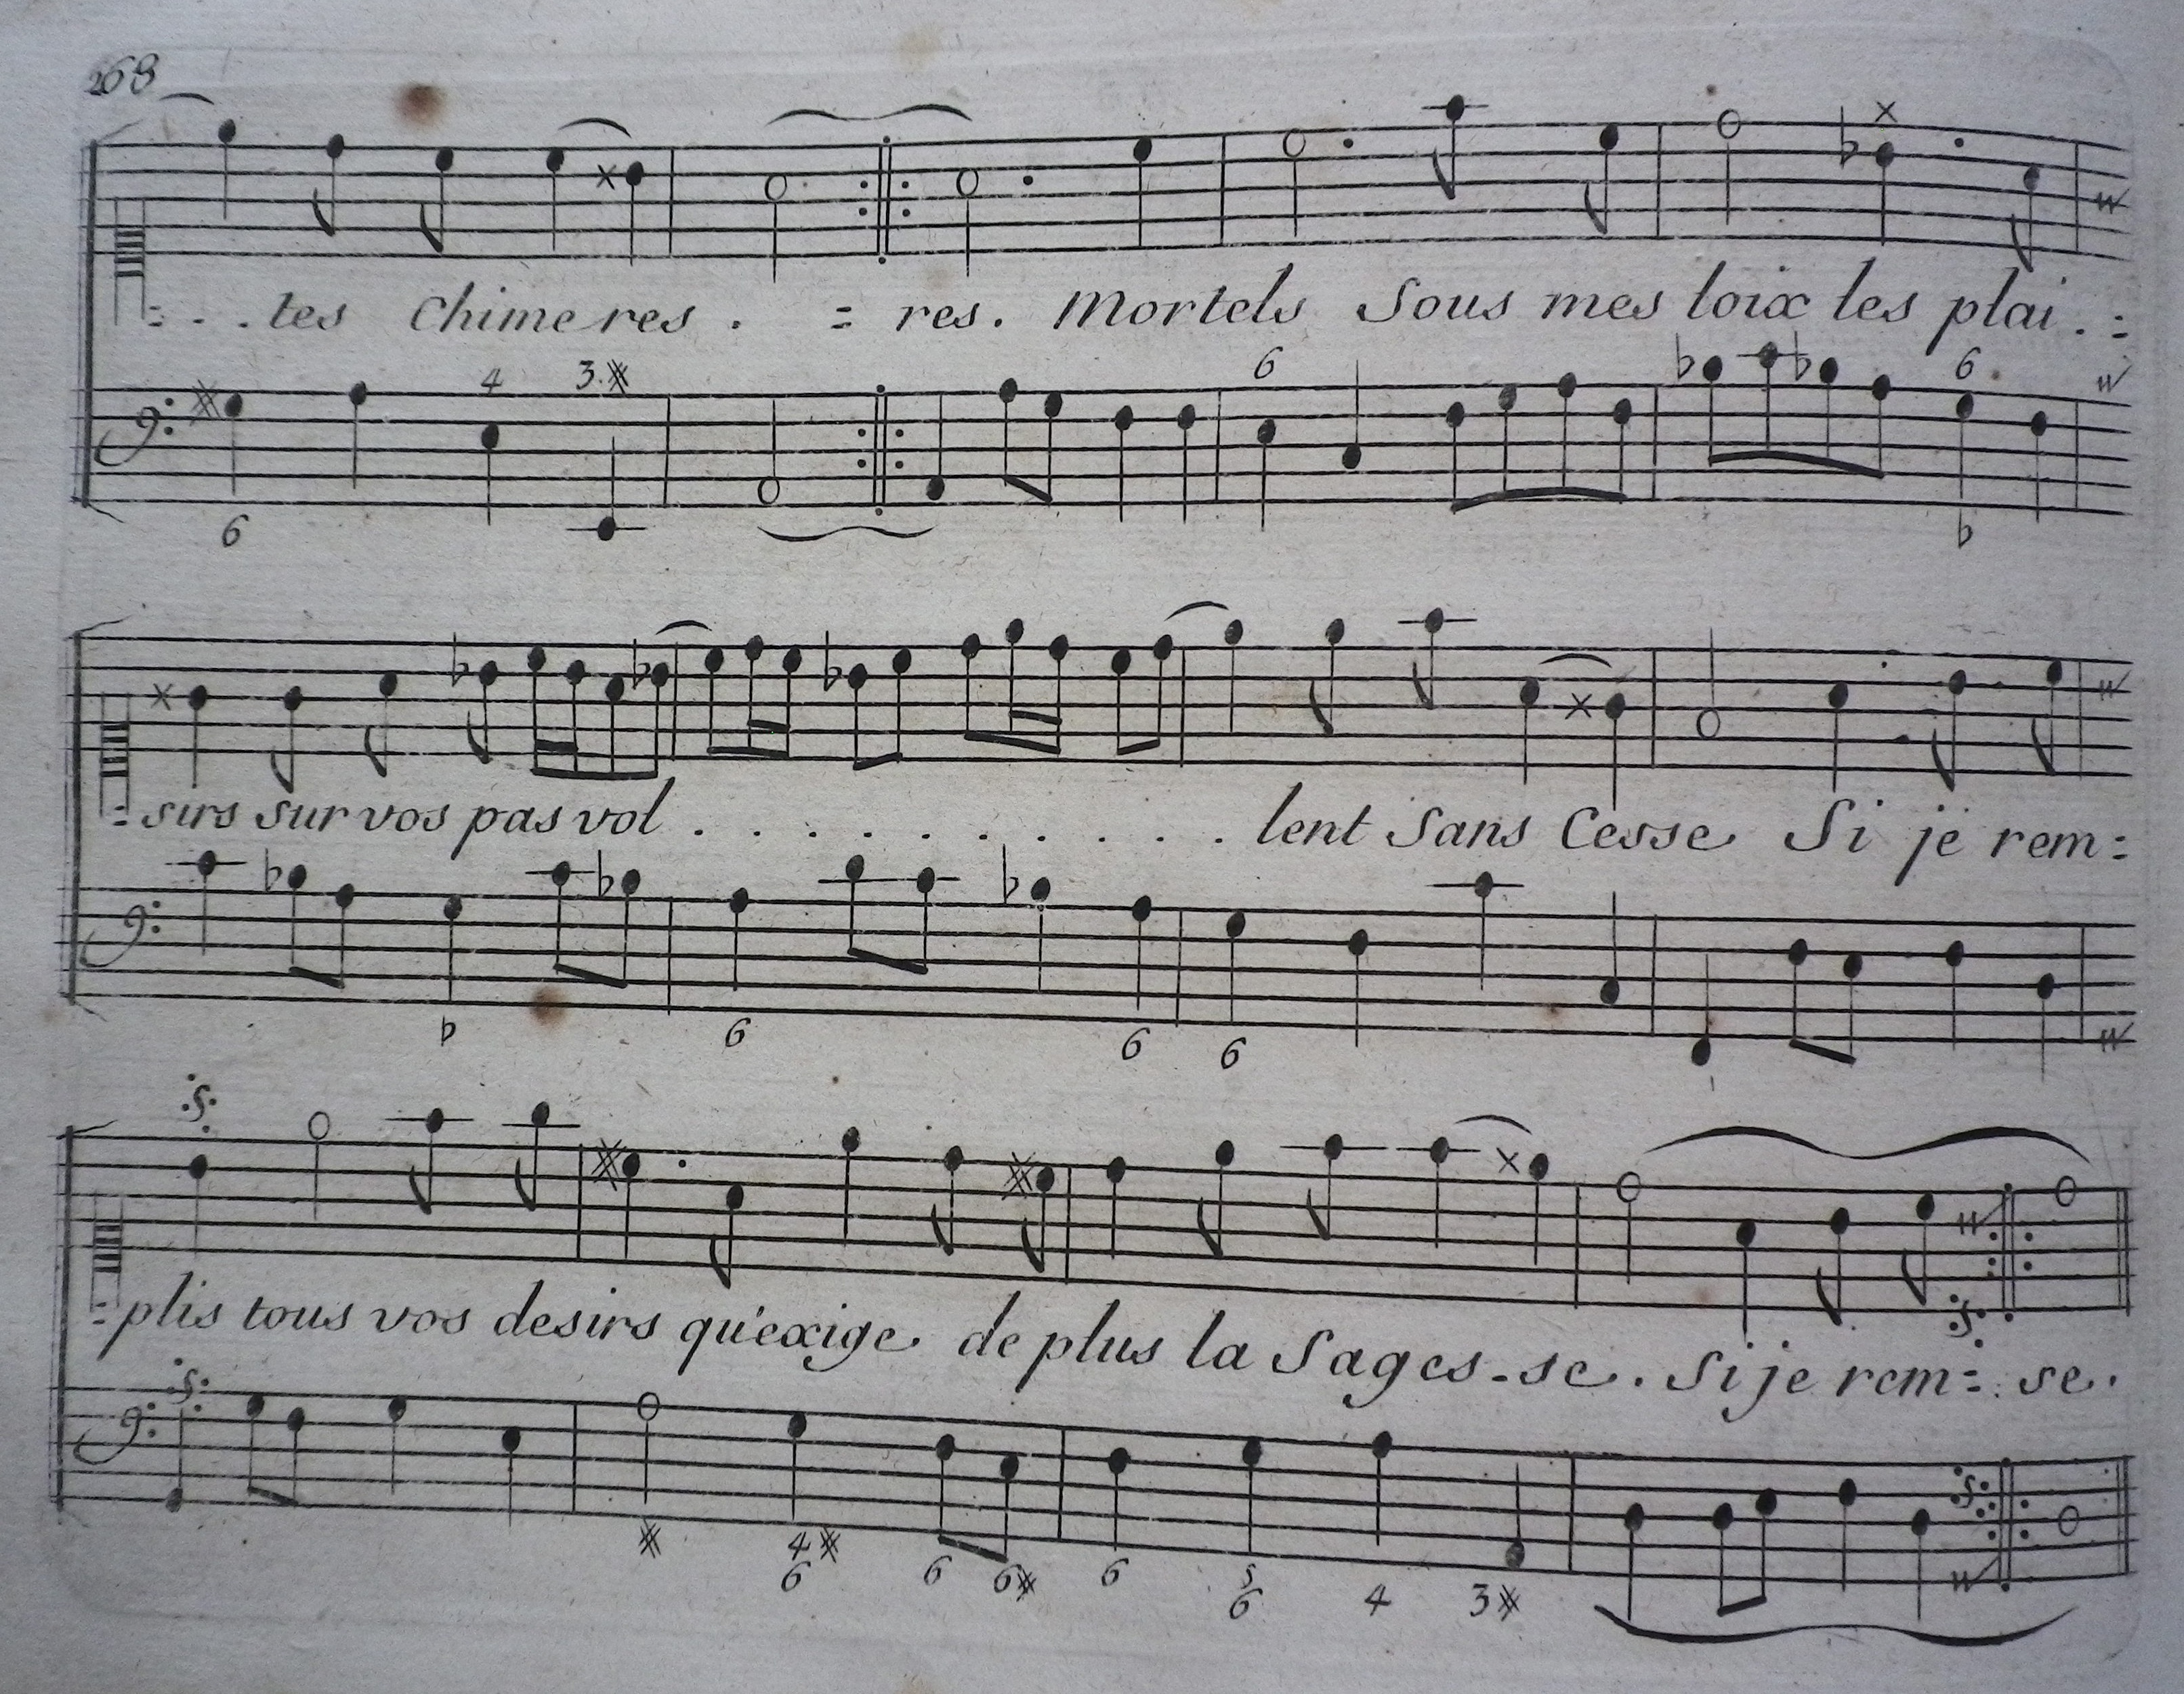 268
=. . .tes Chimeres . = res. Mortels Sous mes loix les plai . =
4 3
6
6 6
=sirs sur vos pas vol . . . . . . . . . . lent Sans Cesse Si je rem=
6 6 6
=plis tous vos desirs qu'exige de plus la Sages-se. Si je rem= se.
4 6 6 6 6 5 6 4 3